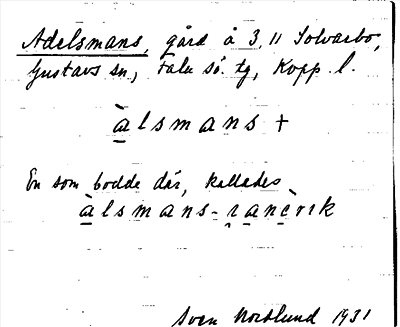 Adelsmans, gård å 3, 11 Solvarbo,
Gustavs sn, Falu sö. tg, Kopp. l.
àlsmans +
En som bodde där, kallades
àlsmans-
Sven Norslund 1931